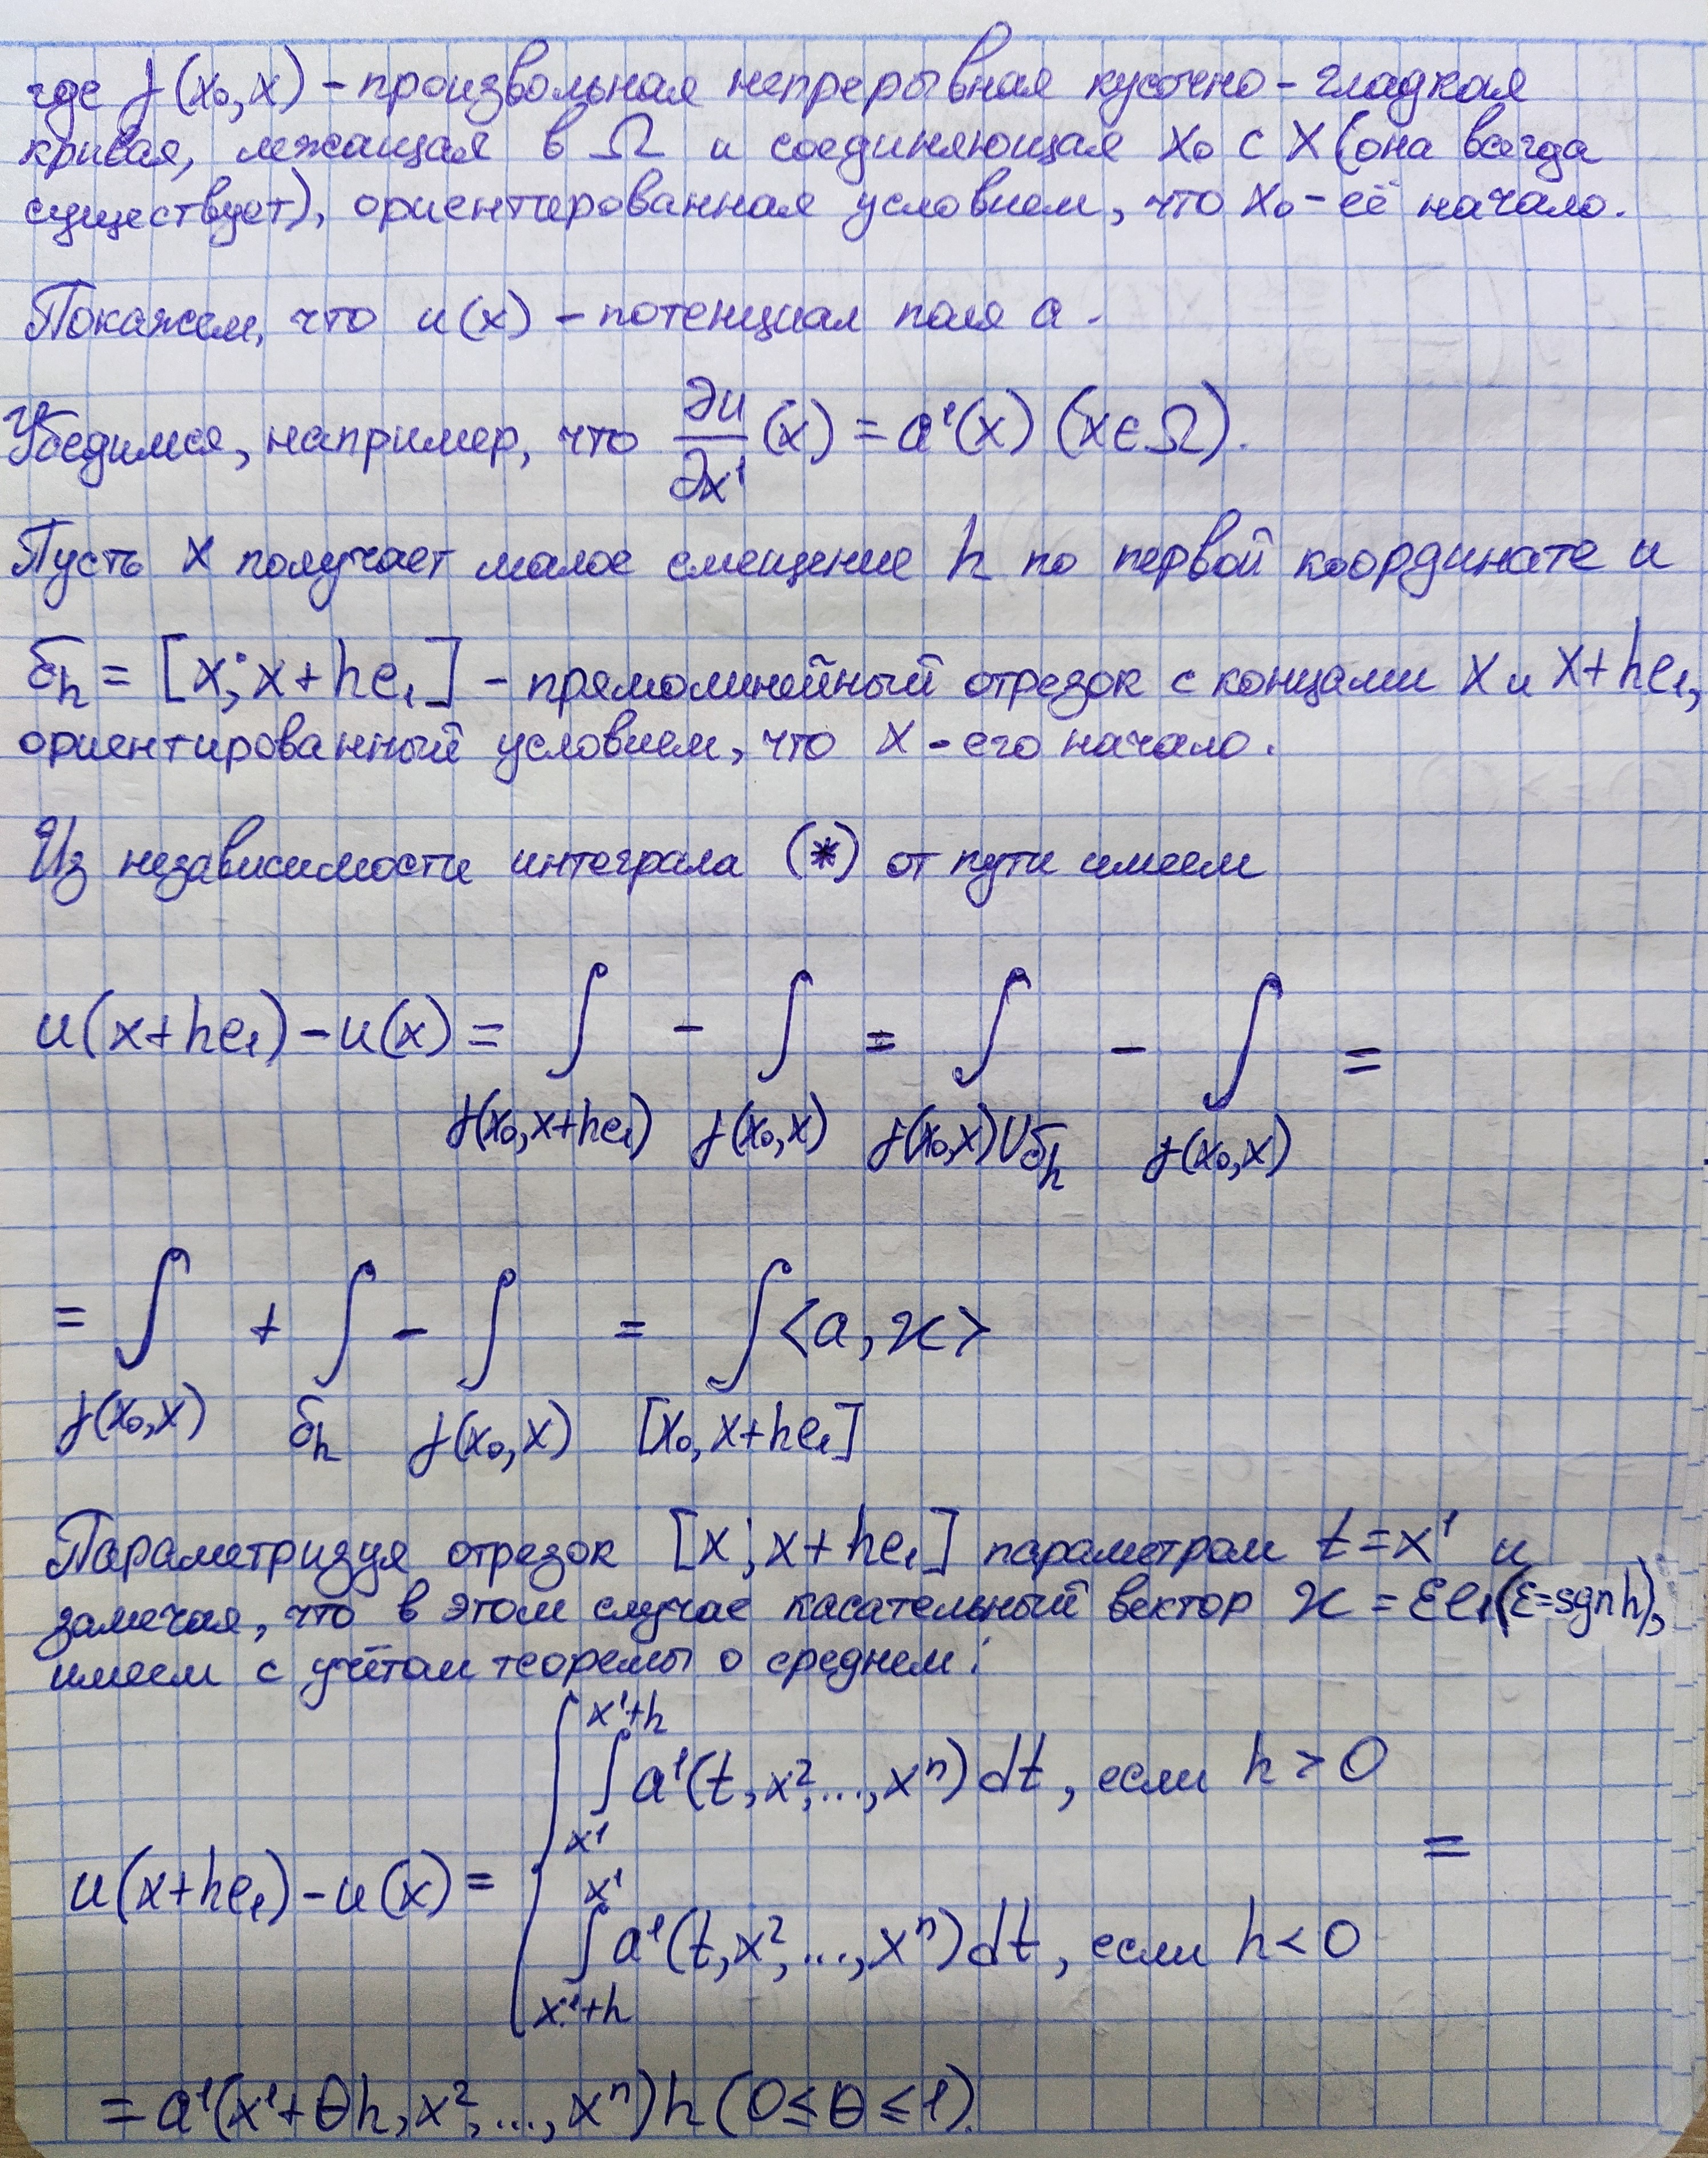 где γ(x₀,x) – произвольная непрерывная кусочно-гладкая
кривая, лежащая в Ω и соединяющая x₀ с x (она всегда
существует), ориентированная условием, что x₀ – её начало.
Покажем, что u(x) – потенциал поля a.
Убедимся, например, что ∂u/∂x¹ (x) = a¹(x) (x∈Ω).
Пусть x получает малое смещение h по первой координате и
δₕ = [x; x+he₁] – прямолинейный отрезок с концами x и x+he₁,
ориентированный условием, что x – его начало.
Из независимости интеграла (*) от пути имеем
u(x+he₁) – u(x) = ∫ – ∫ = ∫ – ∫ =
γ(x₀,x+he₁) γ(x₀,x) γ(x₀,x)∪δₕ γ(x₀,x)
= ∫ + ∫ – ∫ = ∫<a, ϰ>
γ(x₀,x) δₕ γ(x₀,x) [x₀, x+he₁]
Параметризуя отрезок [x; x+he₁] параметром t=x¹ и
замечая, что в этом случае касательный вектор ϰ = εe₁(ε=sgn h),
имеем с учётом теоремы о среднем:
x¹+h
∫ a¹(t, x², ..., xⁿ) dt, если h > 0
x¹
u(x+he₁) – u(x) = { =
x¹
∫ a¹(t, x², ..., xⁿ) dt, если h < 0
x¹+h
= a¹(x¹+θh, x², ..., xⁿ)h (0≤θ≤1).